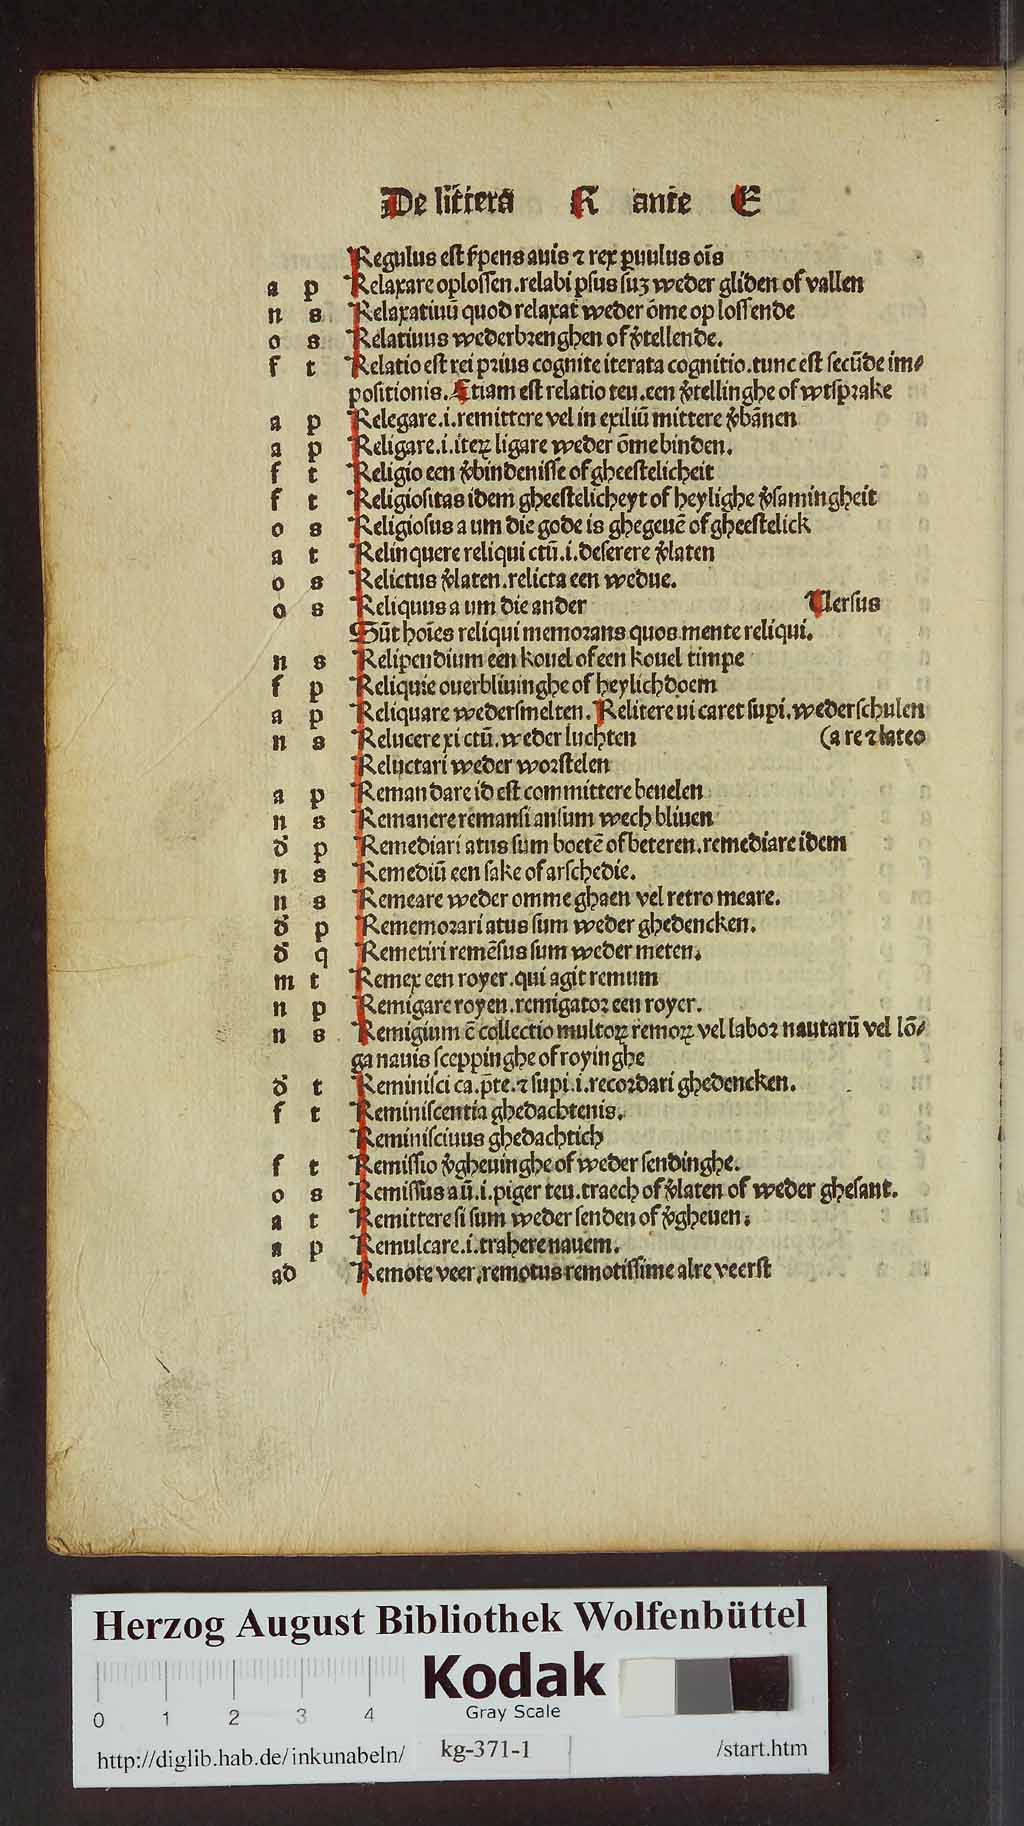 De lr̄a R ante E
Regulus est s̄pens auis ⁊ rex ꝑuulus oīs
a p Relaxare oplossen.relabi ꝑsus suʒ weder gliden of vallen
n s Relaxatiuū quod relaxat weder ōme op lossende
o s Relatiuus wederbrenghen of v̄tellende.
f t Relatio est rei prius cognite iterata cognitio.tunc est secūde im⸗
positionis. Etiam est relatio teu.een v̄tellinghe of wtsprake
a p Relegare.i.remittere vel in exiliū mittere v̄bānen
a p Religare.i.iteꝝ ligare weder ōme binden.
f t Religio een v̄bindenisse of gheestelicheit
f t Religiositas idem gheestelicheyt of heylighe v̄samingheit
o s Religiosus a um die gode is ghegeuē of gheestelick
a t Relinquere reliqui ctū.i.deserere v̄laten
o s Relictus v̄laten.relicta een wedue.
o s Reliquus a um die ander Uersus
Sūt hoīes reliqui memorans quos mente reliqui.
n s Relipendium een kouel of een kouel timpe
f p Reliquie ouerbliuinghe of heylichdoem
a p Reliquare wedersmelten. Relitere ui caret supi.wederschulen
n s Relucere xi ctū.weder luchten (a re ⁊ lateo
Reluctari weder worstelen
a p Remandare id est committere beuelen
n s Remanere remansi ansum wech bliuen
d̄ p Remediari atus sum boetē of beteren.remediare idem
n s Remediū een sake of arschedie.
n s Remeare weder omme ghaen vel retro meare.
d̄ p Rememorari atus sum weder ghedencken.
d̄ q Remetiri remēsus sum weder meten.
m t Remex een royer.qui agit remum
n p Remigare royen.remigator een royer.
n s Remigium ē collectio multoꝝ remoꝝ vel labor nautarū vel lō⸗
ga nauis sceppinghe of royinghe
d̄ t Reminisci ca.p̄te.⁊ supi.i.recordari ghedencken.
f t Reminiscentia ghedachtenis.
Reminisciuus ghedachtich
f t Remissio v̄gheuinghe of weder sendinghe.
o s Remissus aū.i.piger teu.traech of v̄laten of weder ghesant.
a t Remittere si sum weder senden of v̄gheuen.
a p Remulcare.i.trahere nauem.
ad Remote veer.remotus remotissime alre veerst
Herzog August Bibliothek Wolfenbüttel
Kodak
Gray Scale
0 1 2 3 4
http://diglib.hab.de/inkunabeln/ kg-371-1 /start.htm